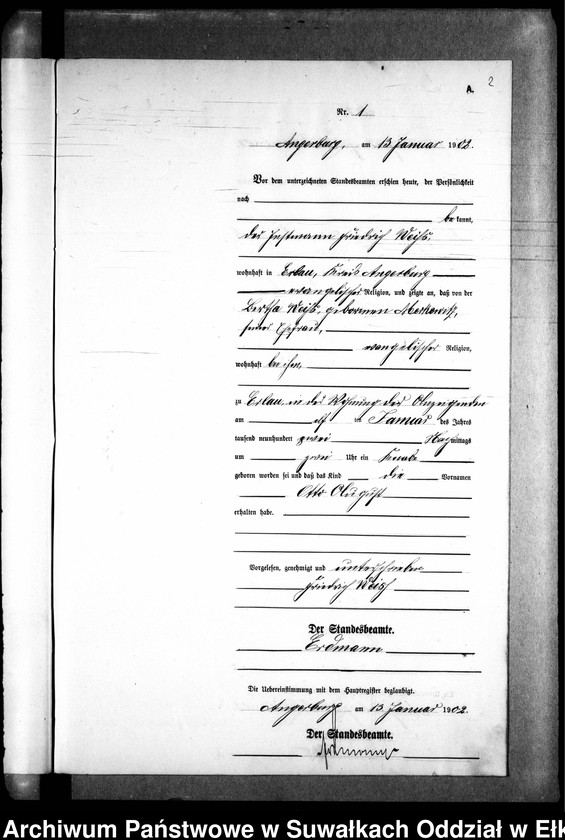 A.
2
Nr. 1
Angerburg, am 13 Januar 1902.
Vor dem unterzeichneten Standesbeamten erschien heute, der Persönlichkeit
nach
bekannt,
der Instmann Friedrich Weiß.
wohnhaft in Erlau, Kreis Angerburg
evangelischer Religion, und zeigte an, daß von der
Bertha Weiß, geborenen Merkowitz,
seiner Ehefrau,
evangelischer Religion,
wohnhaft bei ihm,
zu Erlau, in der Wohnung des Anzeigenden
am elf ten Januar des Jahres
tausend neunhundert zwei Nachmittags
um zwei Uhr ein Knabe
geboren worden sei und daß das Kind die Vornamen
Otto August
erhalten habe.
Vorgelesen, genehmigt und unterschrieben
Friedrich Weiß
Der Standesbeamte.
Erdmann
Die Uebereinstimmung mit dem Hauptregister beglaubigt.
Angerburg am 13 Januar 1902.
Der Standesbeamte.
Erdmann
Archiwum Państwowe w Suwałkach Oddział w Ełk